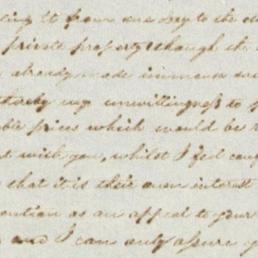 ling it from one day to the o
private property though the
already made immense
thereby my unwillingness to
ble prices which would be
t with you, whilst I feel con
that it is their own interest
ution as an appeal to your
and I can only assure y